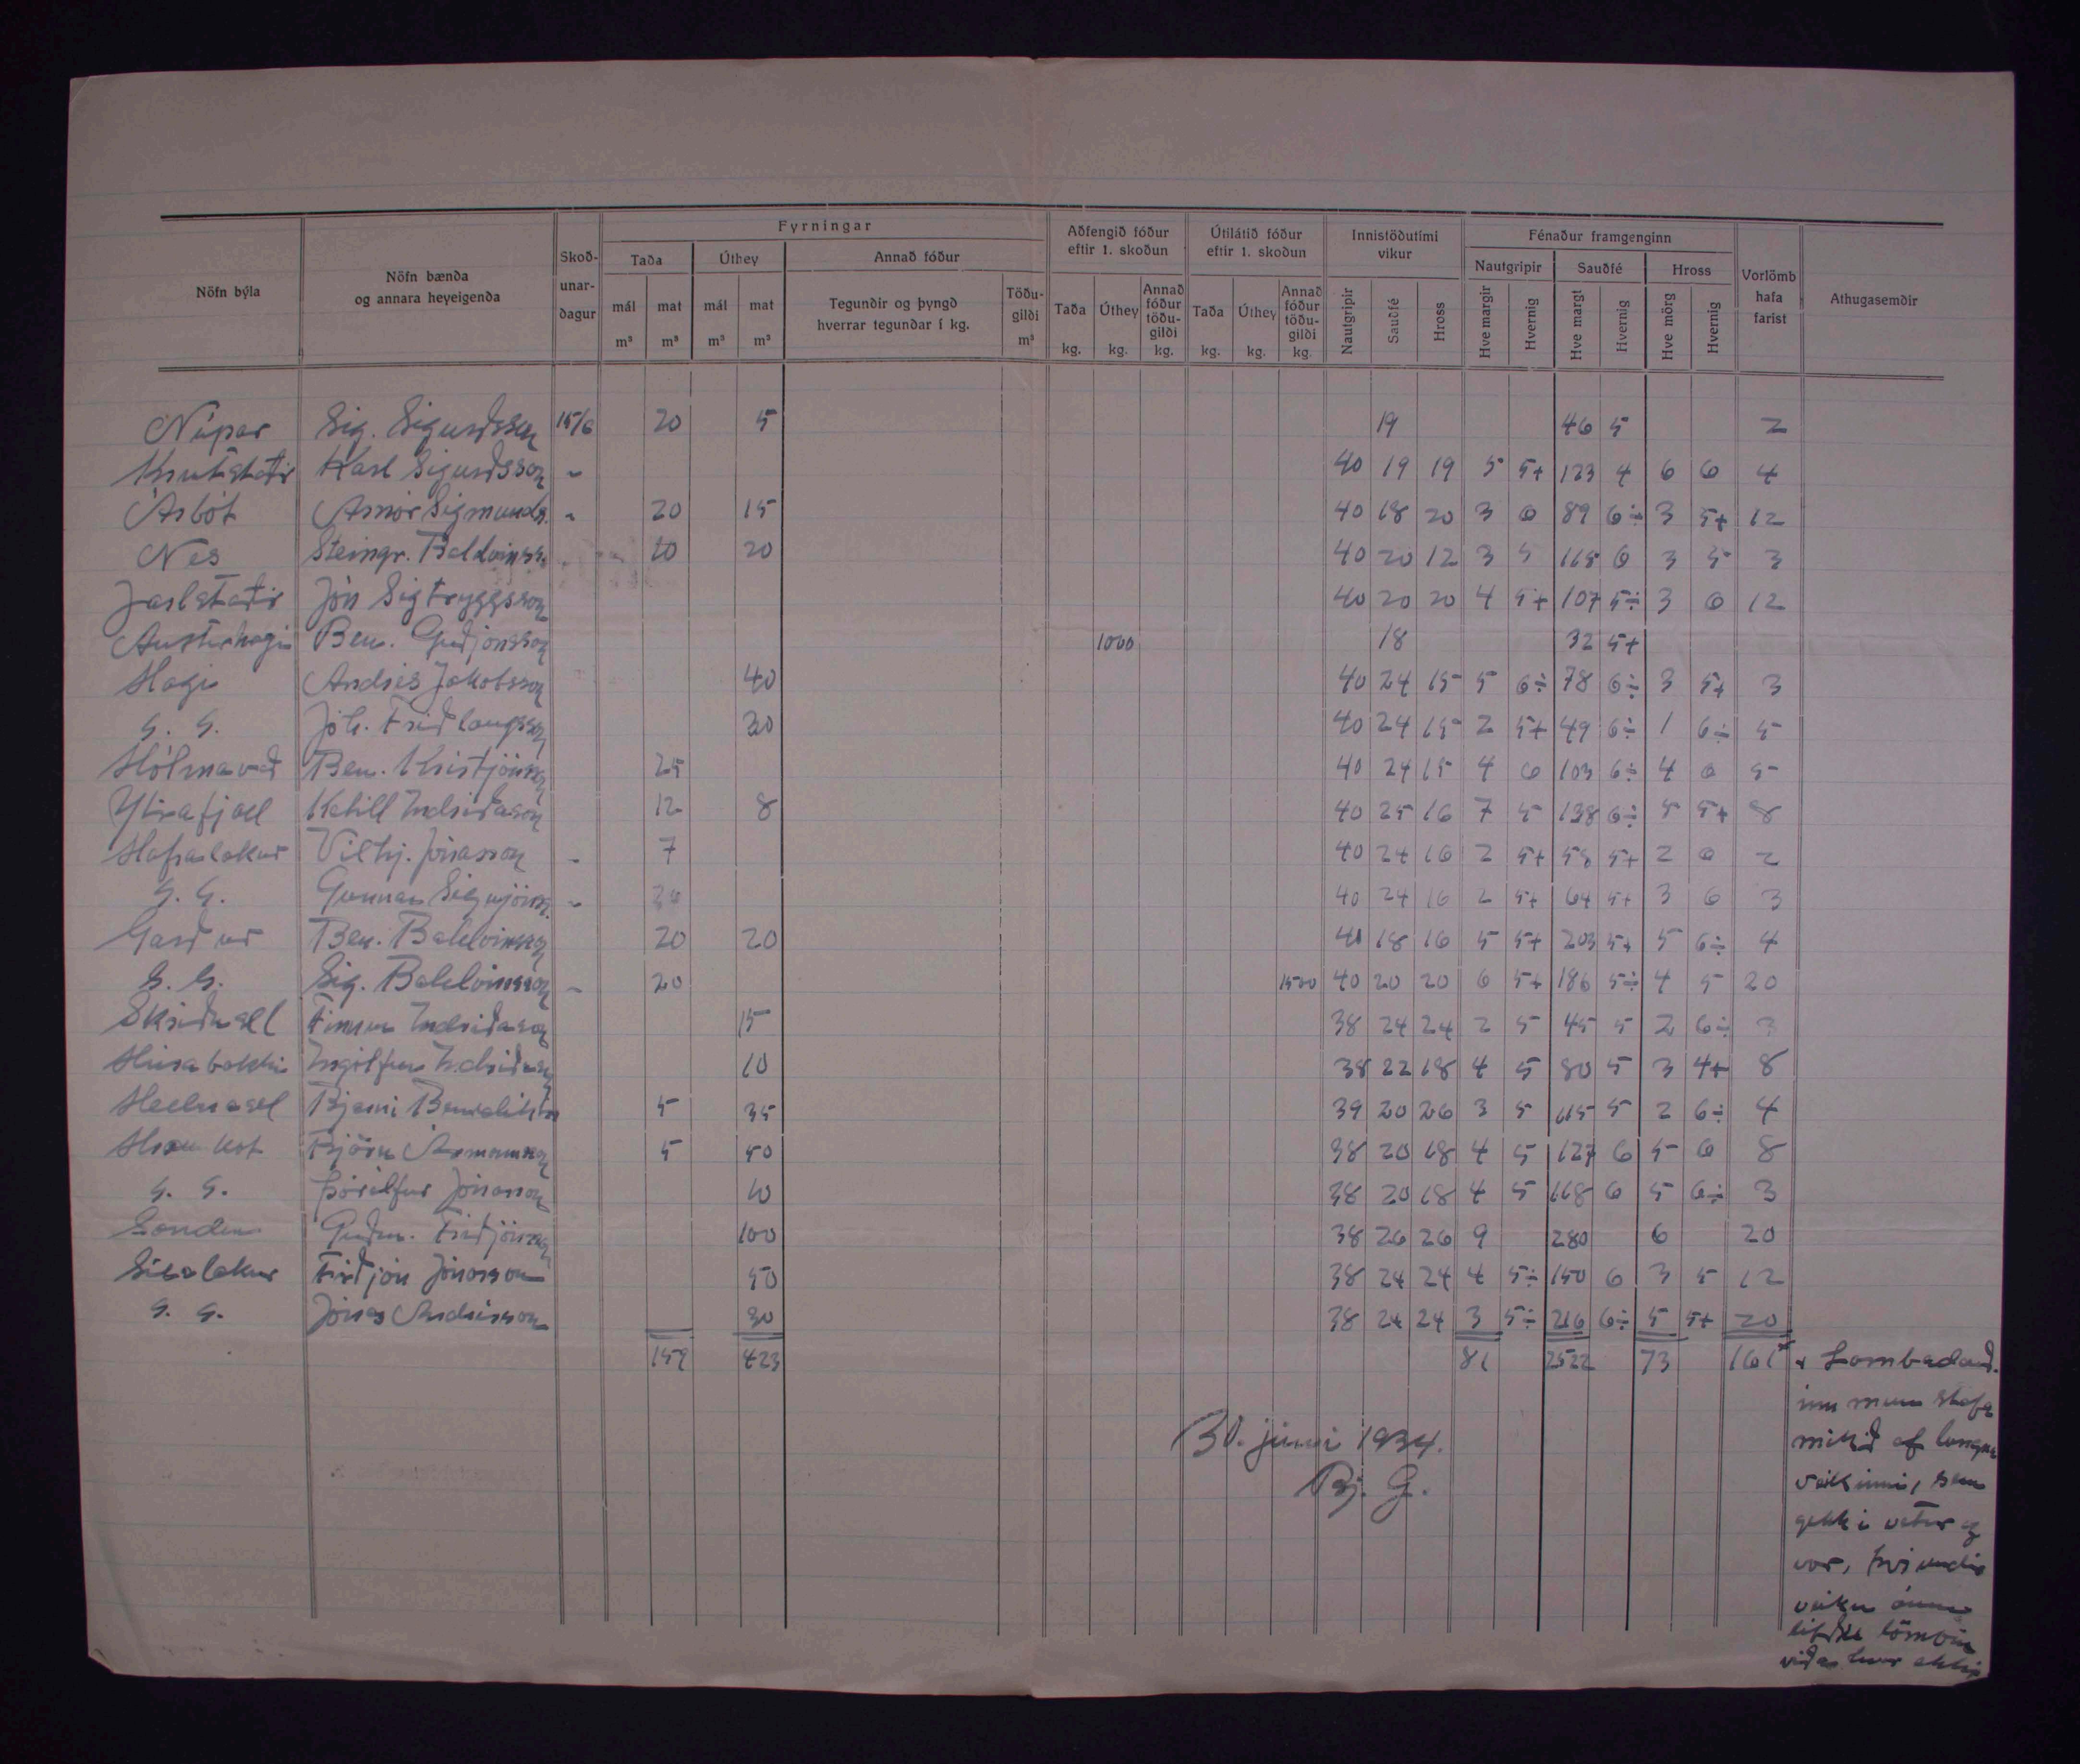 Fyrningar
Aðfengið fóður eftir 1. skoðun
Útilátið fóður eftir 1. skoðun
Innistöðutími vikur
Fénaður framgenginn
Nöfn býla
Nöfn bænda og annara heyeigenda
Skoð-unar-dagur
Taða
Úthey
Annað fóður
Nautgripir
Sauðfé
Hross
Vorlömb hafa farist
Athugasemdir
mál m³
mat m³
mál m³
mat m³
Tegundir og þyngd hverrar tegundar í kg.
Töðu-gildi m³
Taða kg.
Úthey kg.
Annað fóður töðu-gildi kg.
Taða kg.
Úthey kg.
Annað fóður töðu-gildi kg.
Nautgripir
Sauðfé
Hross
Hve margir
Hvernig
Hve margt
Hvernig
Hve mörg
Hvernig
Núpar Sig. Sigurðsson 15/6 20 5 19 46 5 2
Knútstaðir Karl Sigurðsson - 40 19 19 5 5+ 123 4 6 6 4
Árbót Arnór Sigmunds. - 20 15 40 18 20 3 6 89 6÷ 3 5+ 12
Nes Steingr. Baldvinss. 10 20 40 20 12 3 5 165 6 3 5 3
Jarlstaðir Jón Sigtryggsson 40 20 20 4 5+ 107 5÷ 3 6 12
Austurhagi Ben. Guðjónsson 1000 18 32 5+
Hagi Andrés Jakobsson 40 40 24 15 5 6÷ 78 6÷ 3 5+ 3
S. S. Jóh. Friðlaugsson 30 40 24 15 2 5+ 49 6÷ 1 6÷ 5
Hólmavað Ben. Kristjánss. 25 40 24 15 4 6 103 6÷ 4 6 5
Ytrafjall Ketill Indriðason 12 8 40 25 16 7 5 138 6÷ 5 5+ 8
Hafralækur Vilhj. Jónasson - 7 40 24 16 2 5+ 58 5+ 2 6 2
S. S. Gunnar Sigurjónss. - 40 24 16 2 5+ 64 5+ 3 6 3
Garður Ben. Baldvinsson 20 20 40 18 16 5 5+ 203 5+ 5 6÷ 4
S. S. Sig. Baldvinsson - 20 1500 40 20 20 6 5+ 186 5÷ 4 5 20
Skriðusel Finnur Indriðason 15 38 24 24 2 5 45 5 2 6÷ 3
Húsabakki Ingólfur Indriðason 10 38 22 18 4 5 80 5 3 4+ 8
Hellnasel Bjarni Benediktss. 5 35 39 20 26 3 5 115 5 2 6÷ 4
Hraunkot Björn Ármannss. 5 50 38 20 18 4 5 127 6 5 6 8
S. S. Þórólfur Jónasson 10 38 20 18 4 5 168 6 5 6÷ 3
Sandur Guðm. Friðjónss. 100 38 26 26 9 280 6 20
Sílalækur Friðjón Jónasson 50 38 24 24 4 5÷ 150 6 3 5 12
S. S. Jónas Andrésson 30 38 24 24 3 5÷ 216 6÷ 5 5+ 20
159 423 81 2522 73 161 × Lambadauð.
inn mun stafa
mikið af lungna
veikinni, sem
gekk í vetur og
vor, því undir
veikum ánum
lifðu lömbin
víðast hvar ekki
30. júní 1934.
Bj. G.